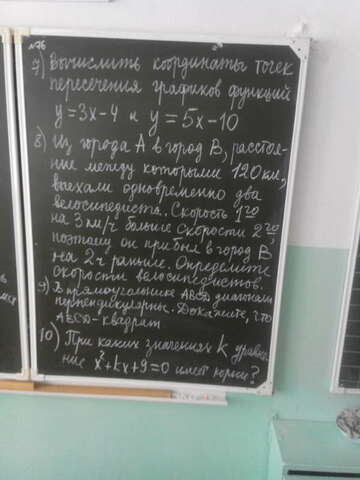 7) Вычислить координаты точек
пересечения графиков функций
y=3x-4 и y=5x-10
8) Из города А в город В, расстоя-
ние между которыми 120 км,
выехали одновременно два
велосипедиста. Скорость 1го
на 3 км/ч больше скорости 2го,
поэтому он прибыл в город В
на 2ч раньше. Определите
скорости велосипедистов.
9) В прямоугольнике ABCD диагонали
перпендикулярны. Докажите, что
ABCD-квадрат
10) При каких значениях k уравне-
ние x²+kx+9=0 имеет корни?